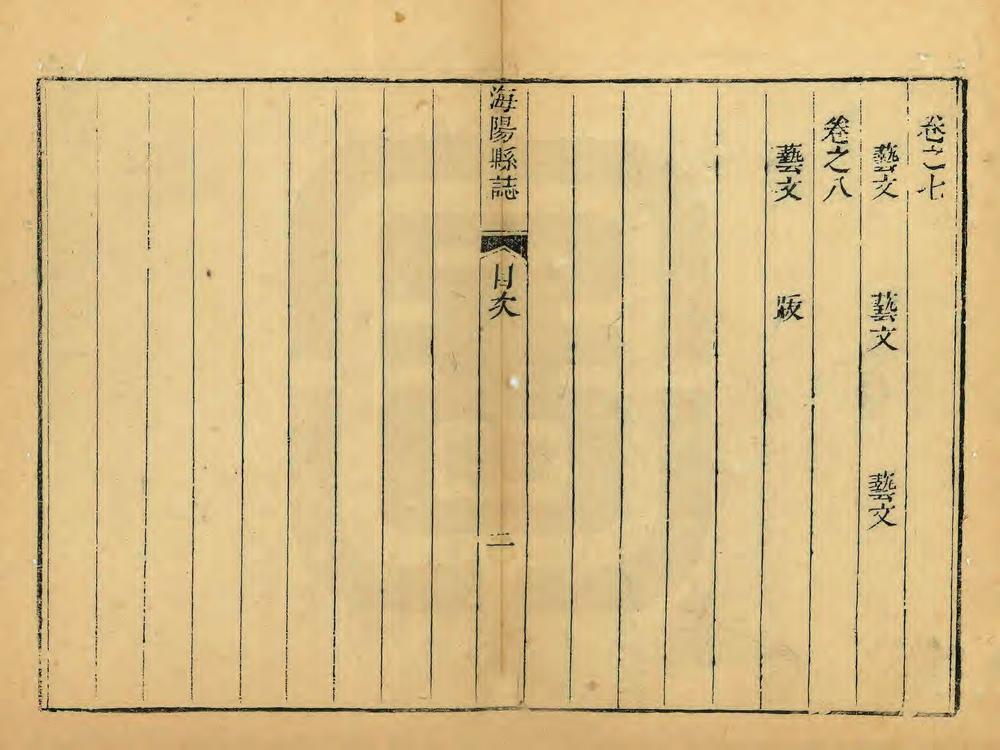 卷之七
藝文　藝文　藝文
卷之八
藝文　䟦
海陽縣誌　目次　二